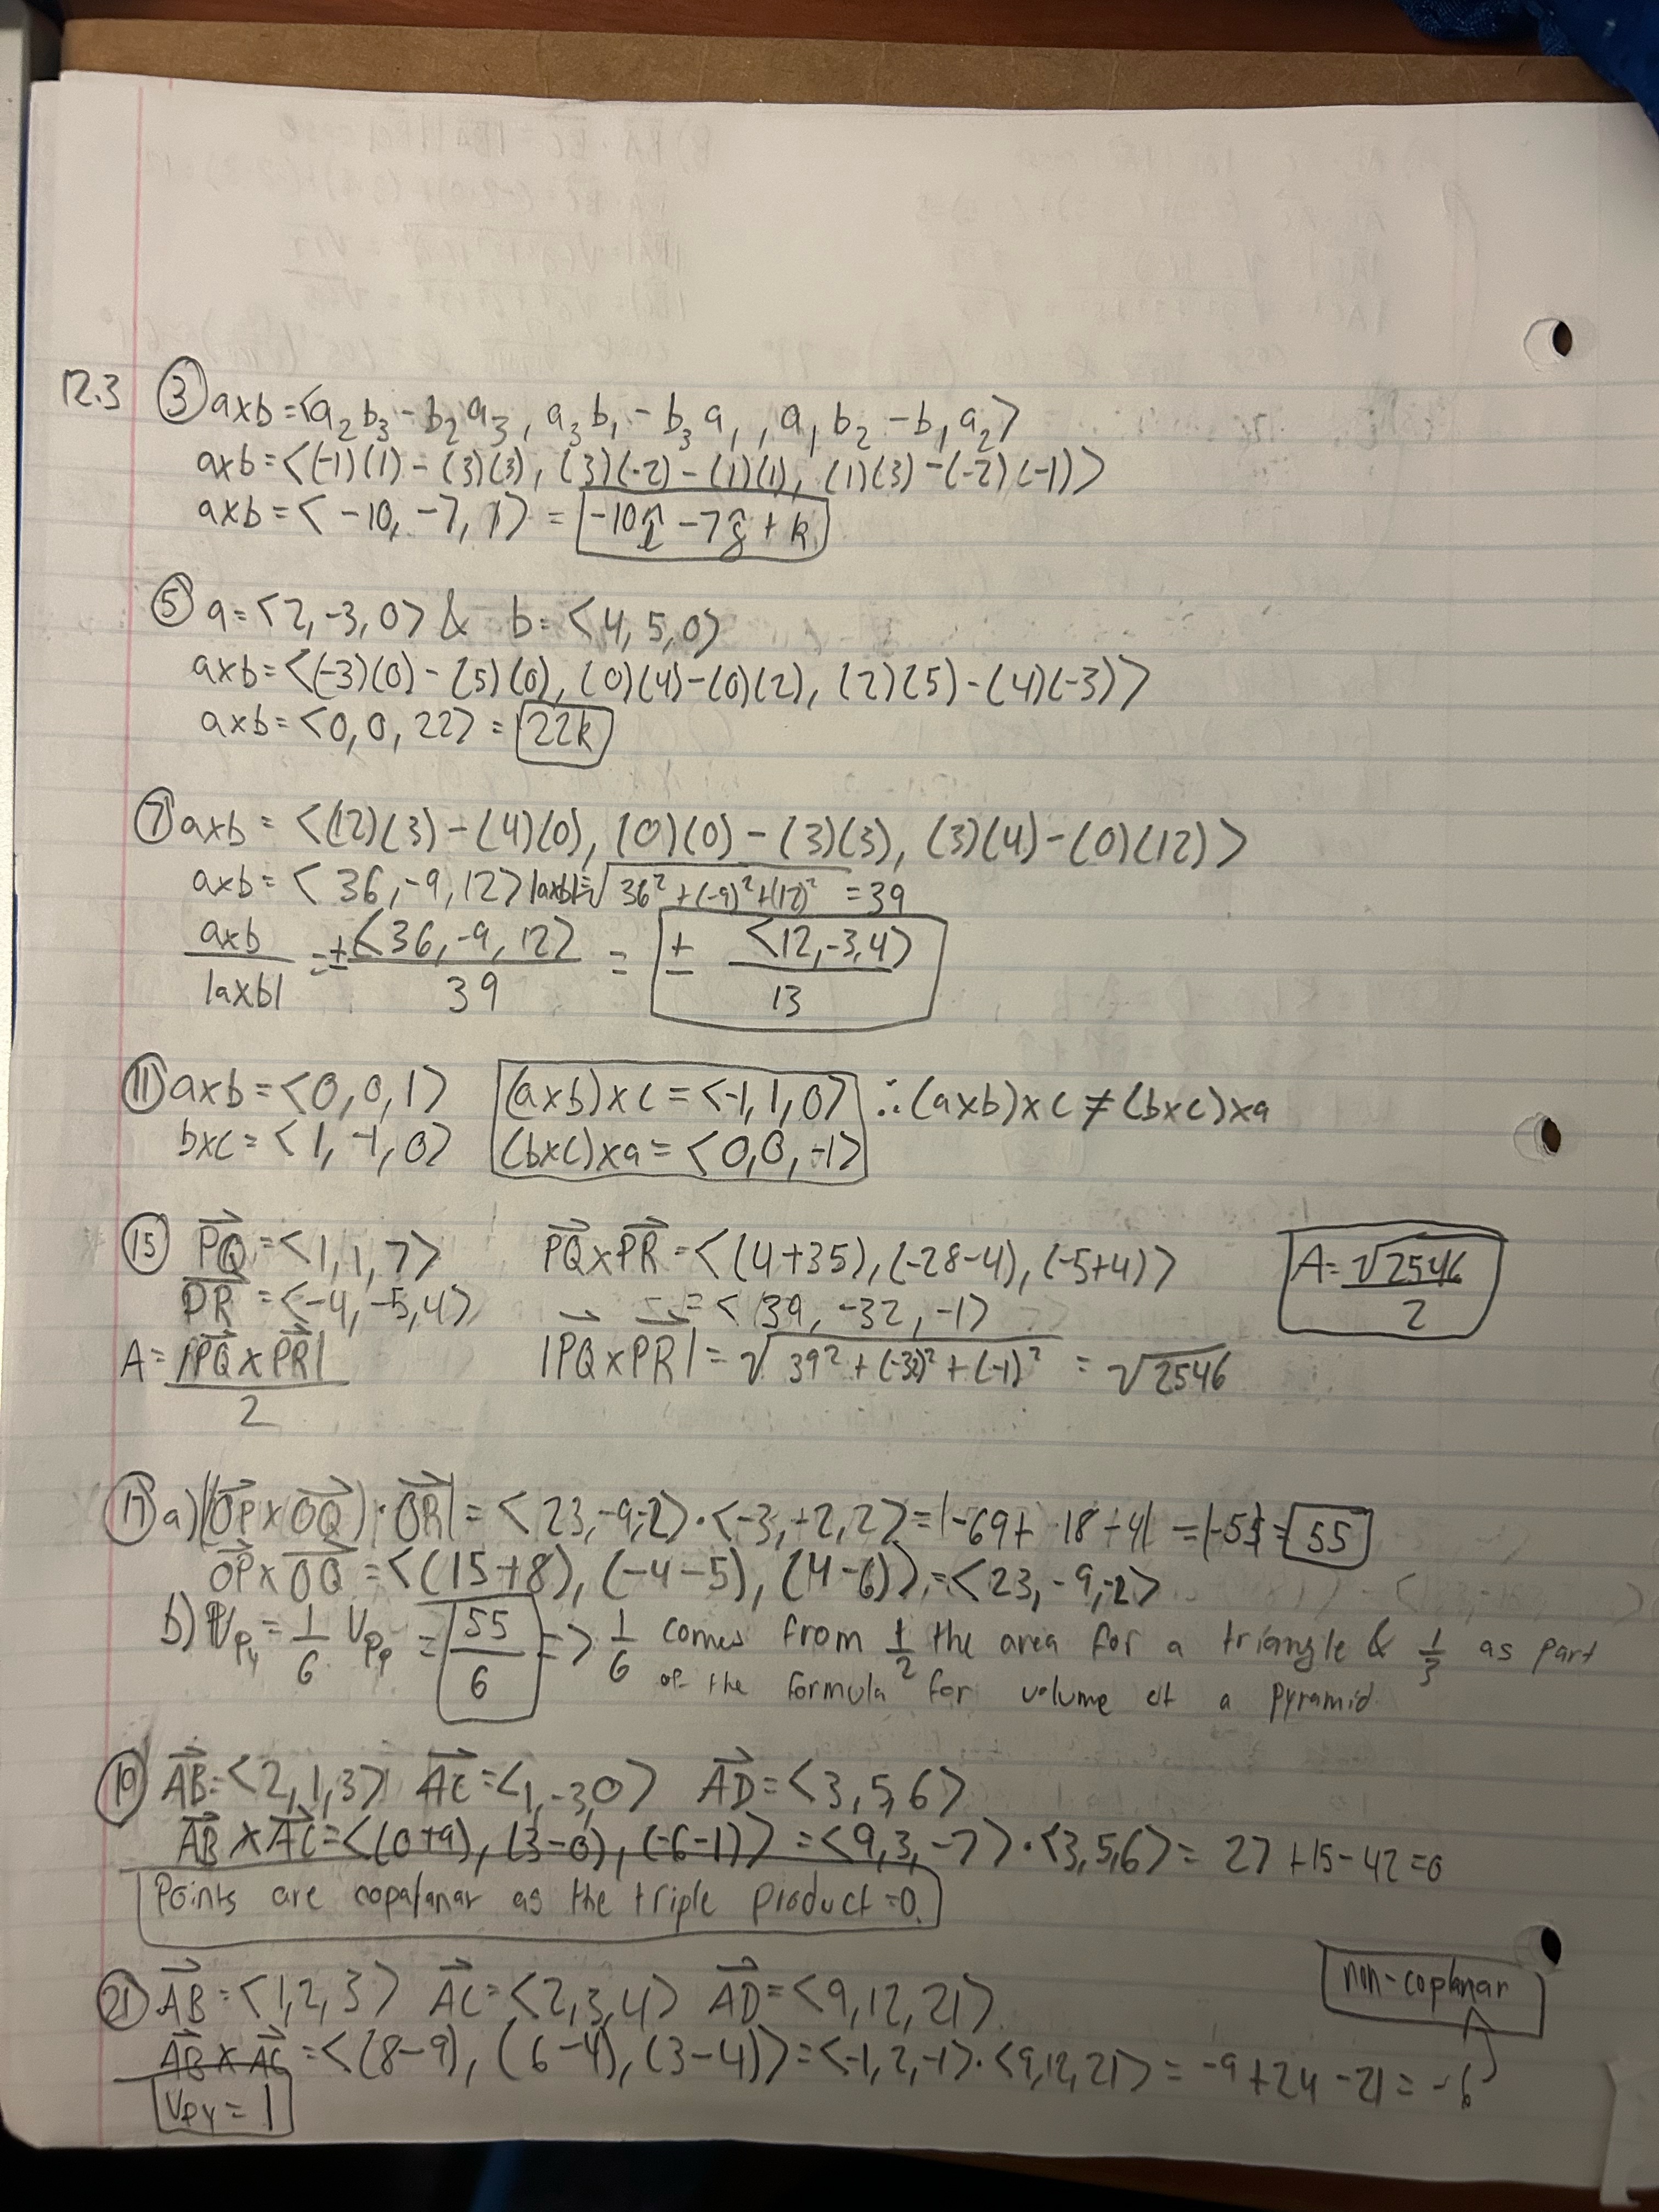 12.3 ③ axb = <a₂b₃ - b₂a₃, a₃b₁ - b₃a₁, a₁b₂ - b₁a₂>
axb = <(-1)(1) - (3)(3), (3)(-2) - (1)(1), (1)(3) - (-2)(-1)>
axb = < -10, -7, 1> = -10î - 7ĵ + k
⑤ a = <2, -3, 0> & b = <4, 5, 0>
axb = <(-3)(0) - (5)(0), (0)(4) - (0)(2), (2)(5) - (4)(-3)>
axb = <0, 0, 22> = 22k
⑦ axb = <(12)(3) - (4)(0), (0)(0) - (3)(3), (3)(4) - (0)(12)>
axb = < 36, -9, 12> |axb| = √36² + (-9)² + (12)² = 39
axb/|axb| = ± <36, -9, 12>/39 = ± <12, -3, 4>/13
⑪ axb = <0, 0, 1> (axb)xc = <-1, 1, 0> ∴ (axb)xc ≠ (bxc)xa
bxc = <1, -1, 0> (bxc)xa = <0, 0, -1>
⑮ PQ = <1, 1, 7> PQ x PR = <(4+35), (-28-4), (-5+4)> A = √2546/2
PR = <-4, -5, 4> = <39, -32, -1>
A = |PQ x PR|/2 |PQ x PR| = √39² + (-32)² + (-1)² = √2546
⑰ a) |(OP x OQ) · OR| = <23, -9, -2> · <-3, +2, 2> = |-69 + -18 + 4| = |-55| = 55
OP x OQ = <(15+8), (-4-5), (4-6)> = <23, -9, -2>
b) Vpy = 1/6 Vpp = 55/6 => 1/6 comes from 1/2 the area for a triangle & 1/3 as part
of the formula for volume of a pyramid.
⑲ AB = <2, 1, 3> AC = <1, -3, 0> AD = <3, 5, 6>
AB x AC = <(0+9), (3-0), (-6-1)> = <9, 3, -7> · <3, 5, 6> = 27 + 15 - 42 = 0
Points are copalanar as the triple product = 0.
㉑ AB = <1, 2, 3> AC = <2, 3, 4> AD = <9, 12, 21> non-coplanar
AB x AC = <(8-9), (6-4), (3-4)> = <-1, 2, -1> · <9, 12, 21> = -9 + 24 - 21 = -6
Vpy = 1